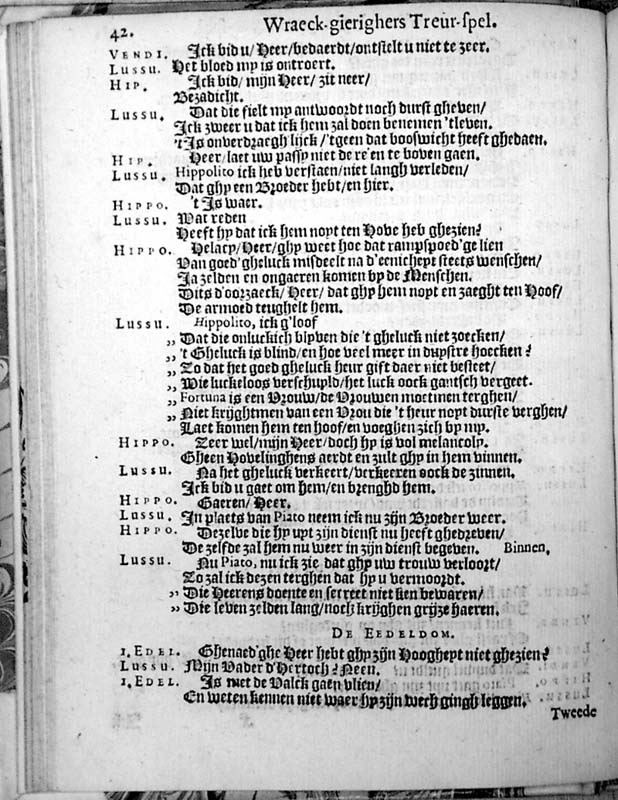 42.
Wraeck-gierighers Treur-spel.
VENDI. Ick bid u/ Heer/bedaerdt/ontstelt u niet te zeer.
LUSSU. Het bloed my is ontroert.
HIP. Ick bid/ mijn Heer/ zit neer/
Bezadicht.
LUSSU. Dat die fielt my antwoordt noch durst gheven/
Ick zweer u dat ick hem zal doen benemen 'tleven.
't Is onverdraegh lijck/ 'tgeen dat booswicht heeft ghedaen.
HIP. Heer/laet uw passy niet de re'en te boven gaen.
LUSSU. Hippolito ick heb verstaen/niet langh verleden/
Dat ghy een Broeder hebt/en hier.
HIPPO. 't Is waer.
LUSSU. Wat reden
Heeft hy dat ick hem noyt ten Hove heb ghezien?
HIPPO. Helacy/Heer/ghy weet hoe dat rampspoed'ge lien
Van goed'gheluck misdeelt na d'eenicheyt steets wenschen/
Ja zelden en ongaeren komen by de Menschen.
Dits d'oorzaeck/ Heer/ dat ghy hem noyt en zaeght ten Hoof/
De armoed teughelt hem.
LUSSU. Hippolito, ick g'loof
„ Dat die onluckich blyven die 't gheluck niet zoecken/
„ 't Gheluck is blind/en hoe veel meer in duystre hoecken?
„ Zo dat het goed gheluck heur gift daer niet besteet/
„ Wie luckeloos verschuyld/het luck oock gantsch vergeet.
„ Fortuna is een Vrouw/de Vrouwen moetmen terghen/
„ Niet krijghtmen van een Vrou die 't heur noyt durste verghen/
Laet komen hem ten hoof/en voeghen zich by my.
HIPPO. Zeer wel/mijn Heer/doch hy is vol melancoly.
Gheen Hovelinghens aerdt en zult ghy in hem vinnen.
LUSSU. Na het gheluck verkeert/verkeeren oock de zinnen.
Ick bid u gaet om hem/en brenghd hem.
HIPPO. Gaeren/ Heer.
LUSSU. In plaets van Piato neem ick nu zijn Broeder weer.
HIPPO. Dezelve die hy uyt zijn dienst nu heeft ghedreven/
De zelfde zal hem nu weer in zijn dienst begeven. Binnen.
LUSSU. Nu Piato, nu ick zie dat ghy uw trouw verloort/
Zo zal ick dezen terghen dat hy u vermoordt.
„ Die Heerens doente en secreet niet ken bewaren/
„ Die leven zelden lang/noch krijghen grijze haeren.
DE EEDELDOM.
1. EDEL. Ghenaed'ghe Heer hebt ghy zijn Hoogheyt niet ghezien?
LUSSU. Mijn Vader d'Hertoch? Neen.
1. EDEL. Is met de Valck gaen vlien/
En weten kennen niet waer hy zijn wech gingh leggen.
Tweede